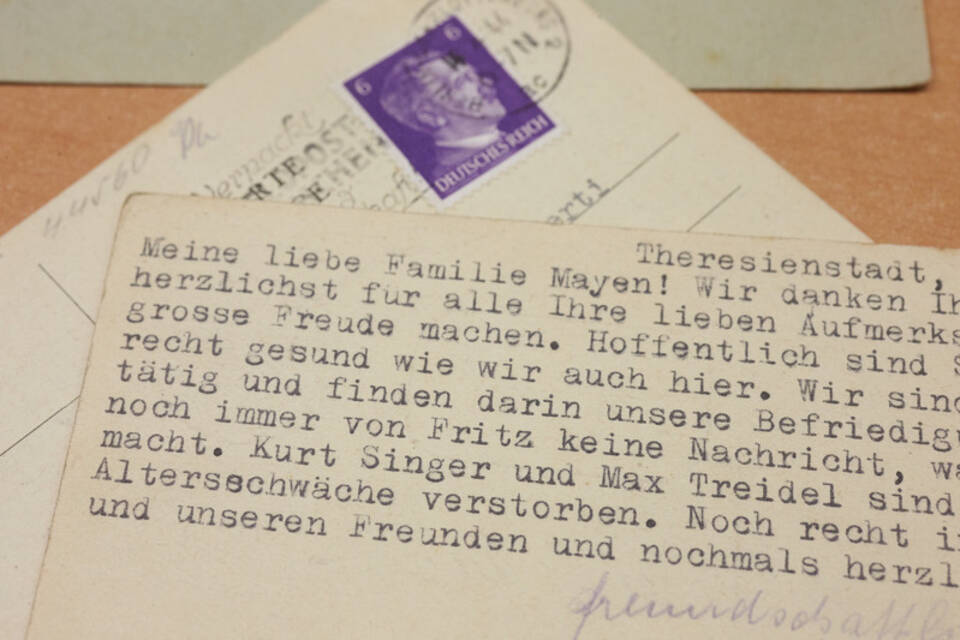 6 6
DEUTSCHES REICH
44560
Verpackt
Theresienstadt,
Meine liebe Familie Mayen! Wir danken Ih
herzlichst für alle Ihre lieben Aufmerks
grosse Freude machen. Hoffentlich sind S
recht gesund wie wir auch hier. Wir sind
tätig und finden darin unsere Befriedigu
noch immer von Fritz keine Nachricht, wa
macht. Kurt Singer und Max Treidel sind
Altersschwäche verstorben. Noch recht in
und unseren Freunden und nochmals herzl
freundschaftl